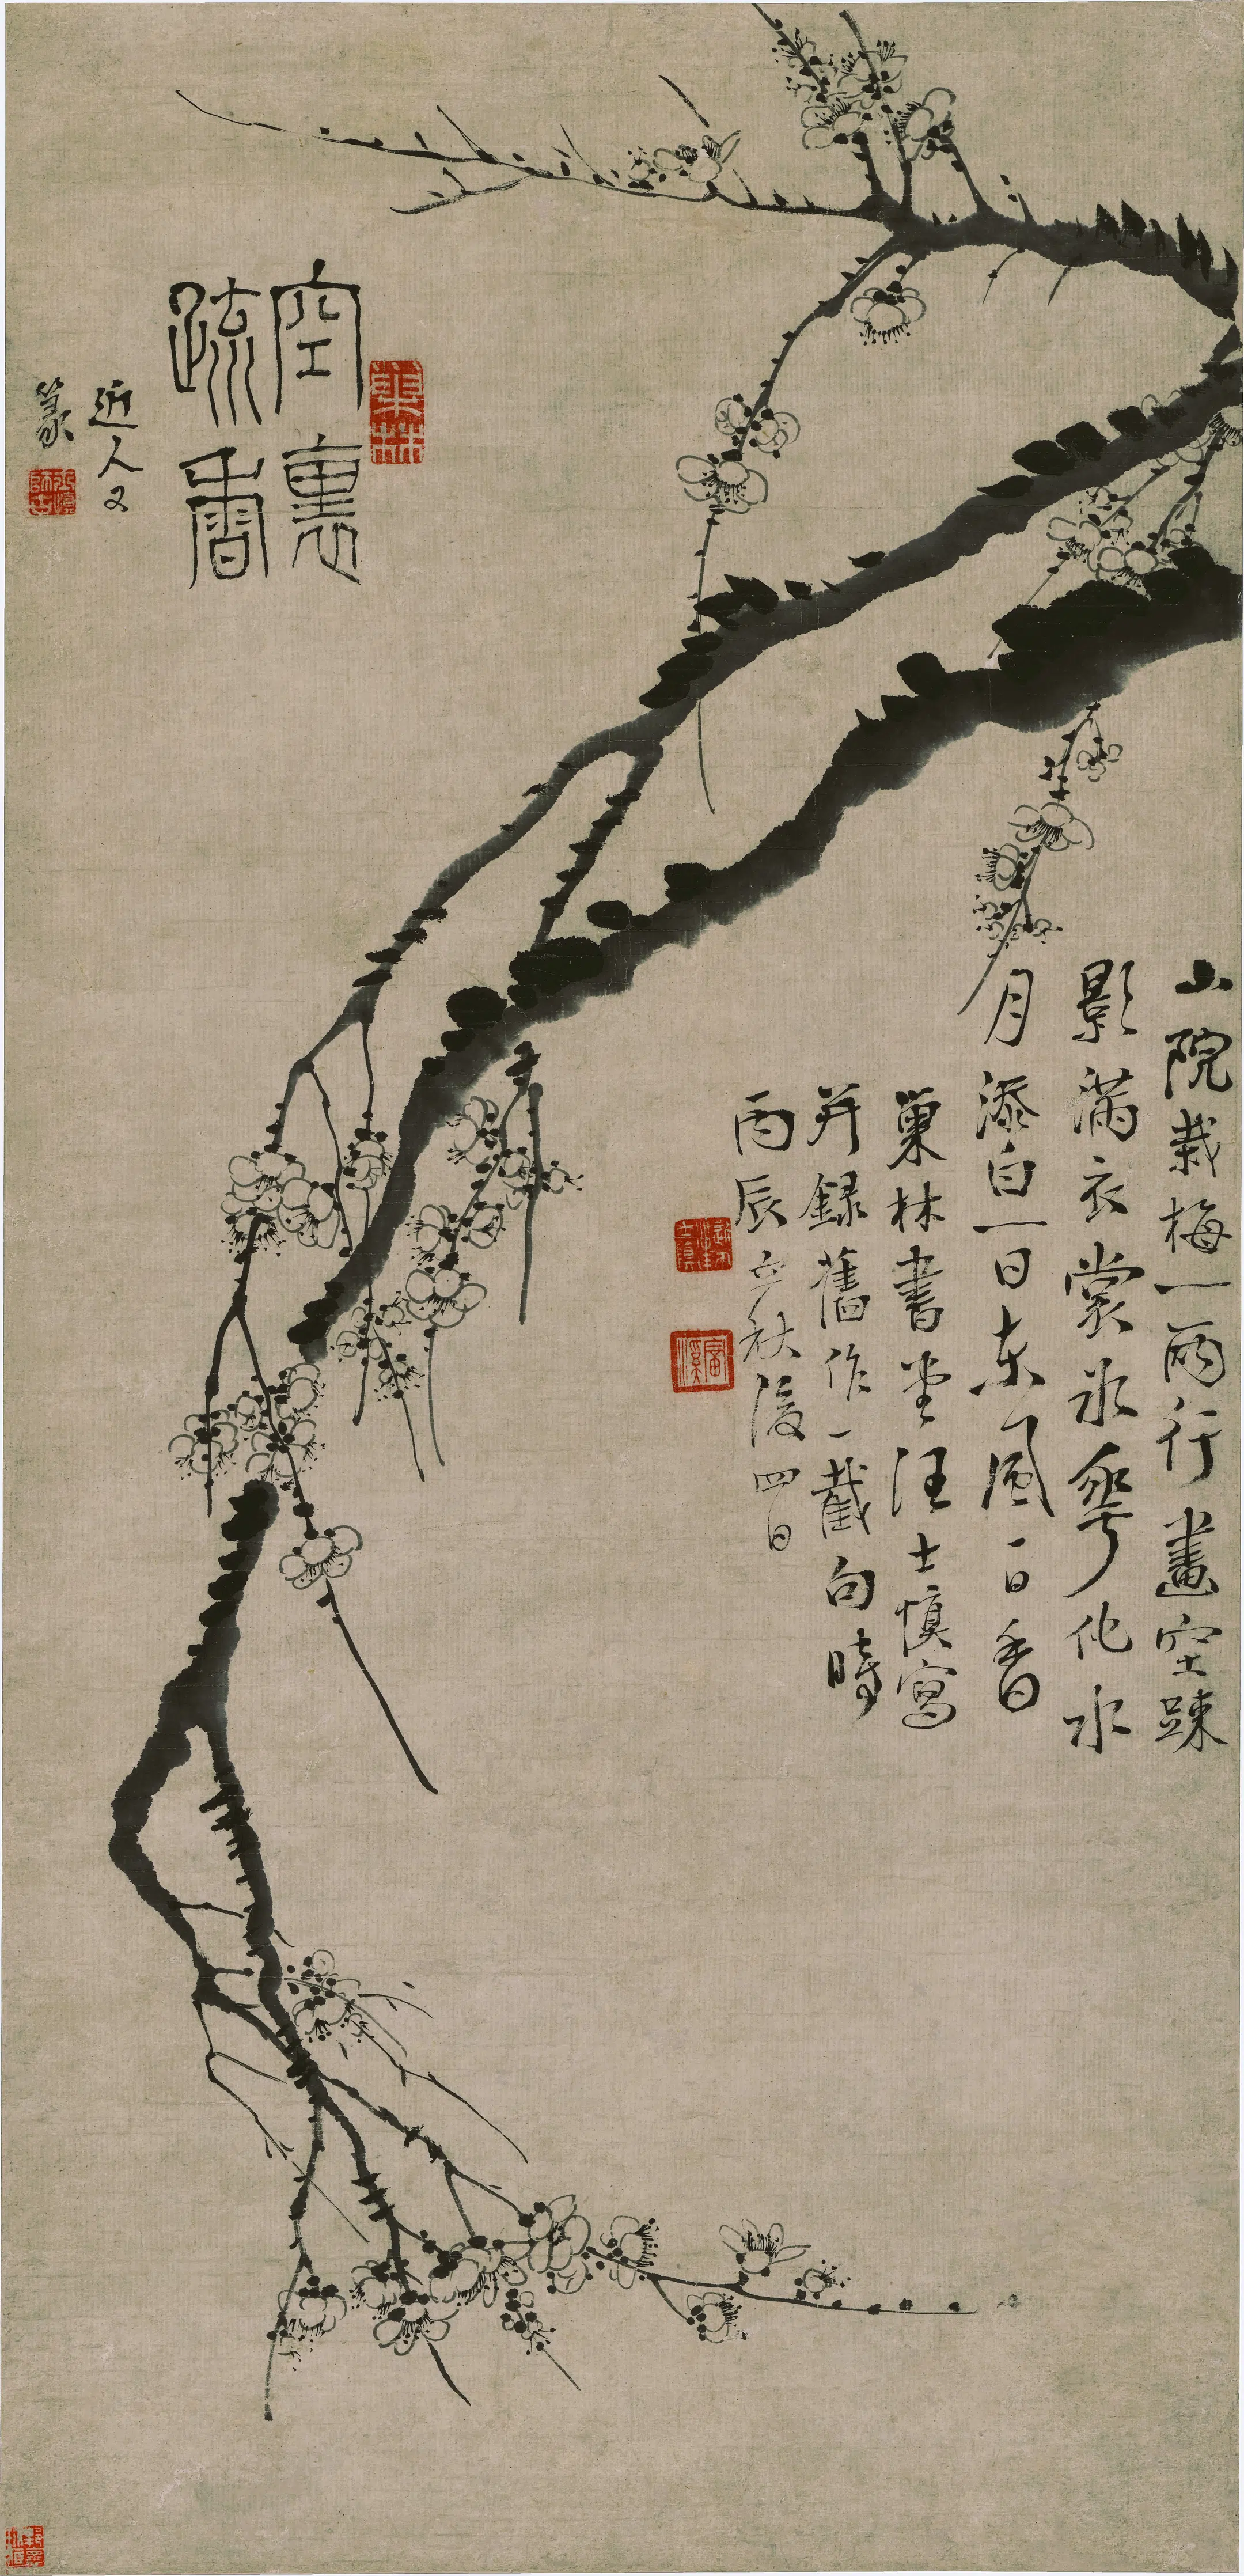 山院栽梅一兩行畫空踈
影滿衣裳冰華化水
月添白一日東風一日香
巢林書堂汪士慎寫
并録舊作一截句時
丙辰立秋後四日
空裏
疏香
近人又
篆